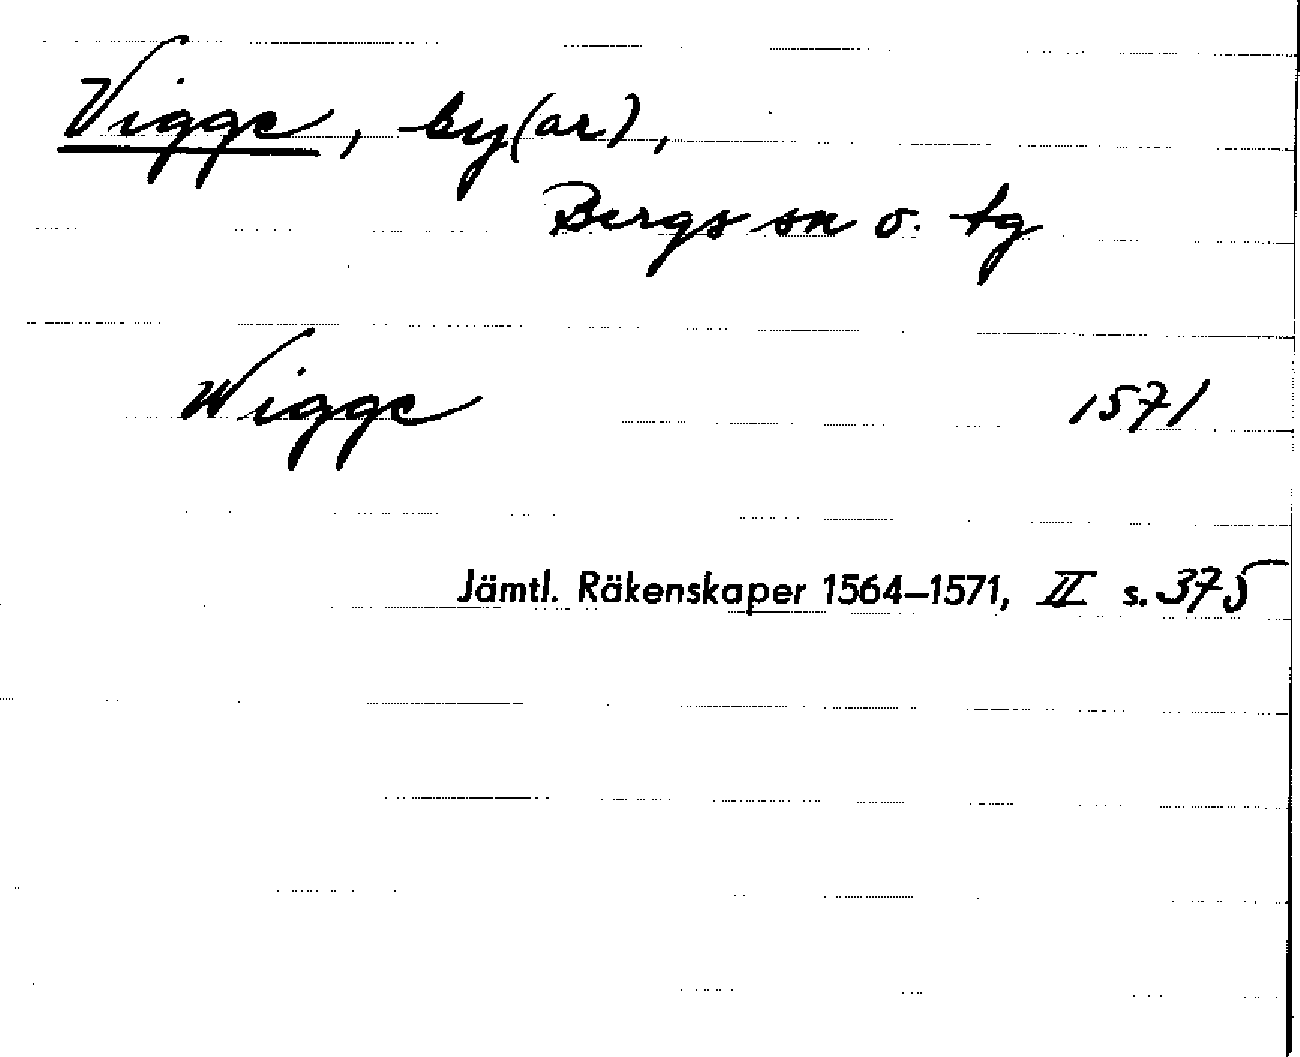 Vigge, by(ar),
Bergs sn o. tg
Wigge 1571
Jämtl. Räkenskaper 1564–1571, II s. 375